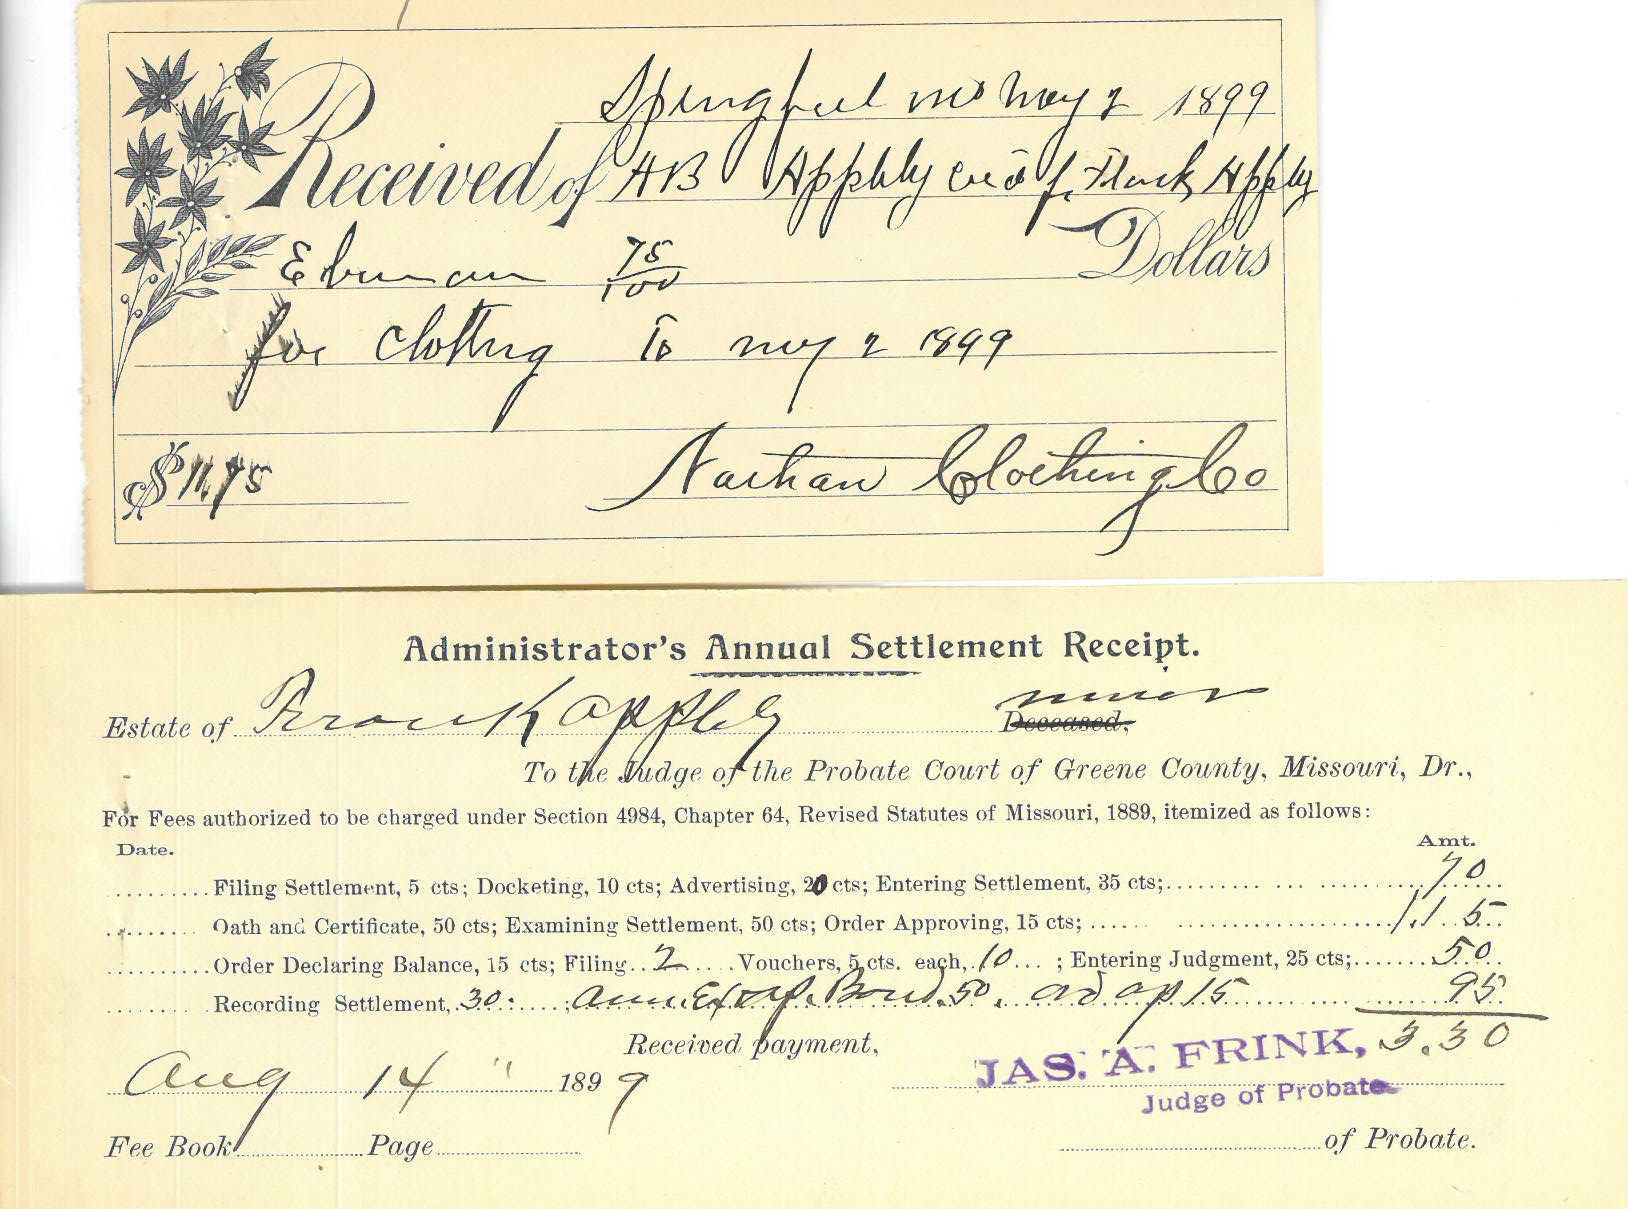 Springfield Mo May 2 1899
Received of AB Appleby Cur of Frank Appleby
Eleven 75/100 Dollars
for Clothing To May 2 1899
$11.75 Nathan Clothing Co
Administrator's Annual Settlement Receipt.
minor
Estate of Frank Appleby Deceased,
To the Judge of the Probate Court of Greene County, Missouri, Dr.,
For Fees authorized to be charged under Section 4984, Chapter 64, Revised Statutes of Missouri, 1889, itemized as follows:
Date. Amt.
Filing Settlement, 5 cts; Docketing, 10 cts; Advertising, 20 cts; Entering Settlement, 35 cts; 70
Oath and Certificate, 50 cts; Examining Settlement, 50 cts; Order Approving, 15 cts; 1.15
Order Declaring Balance, 15 cts; Filing 2 Vouchers, 5 cts. each, 10 ; Entering Judgment, 25 cts; 50
Recording Settlement, 30: ; Ann. Ex of Bond. 50. ad ap 15 95
Received payment, 3.30
JAS. A. FRINK,
Aug 14 " 1899
Judge of Probate
Fee Book Page of Probate.